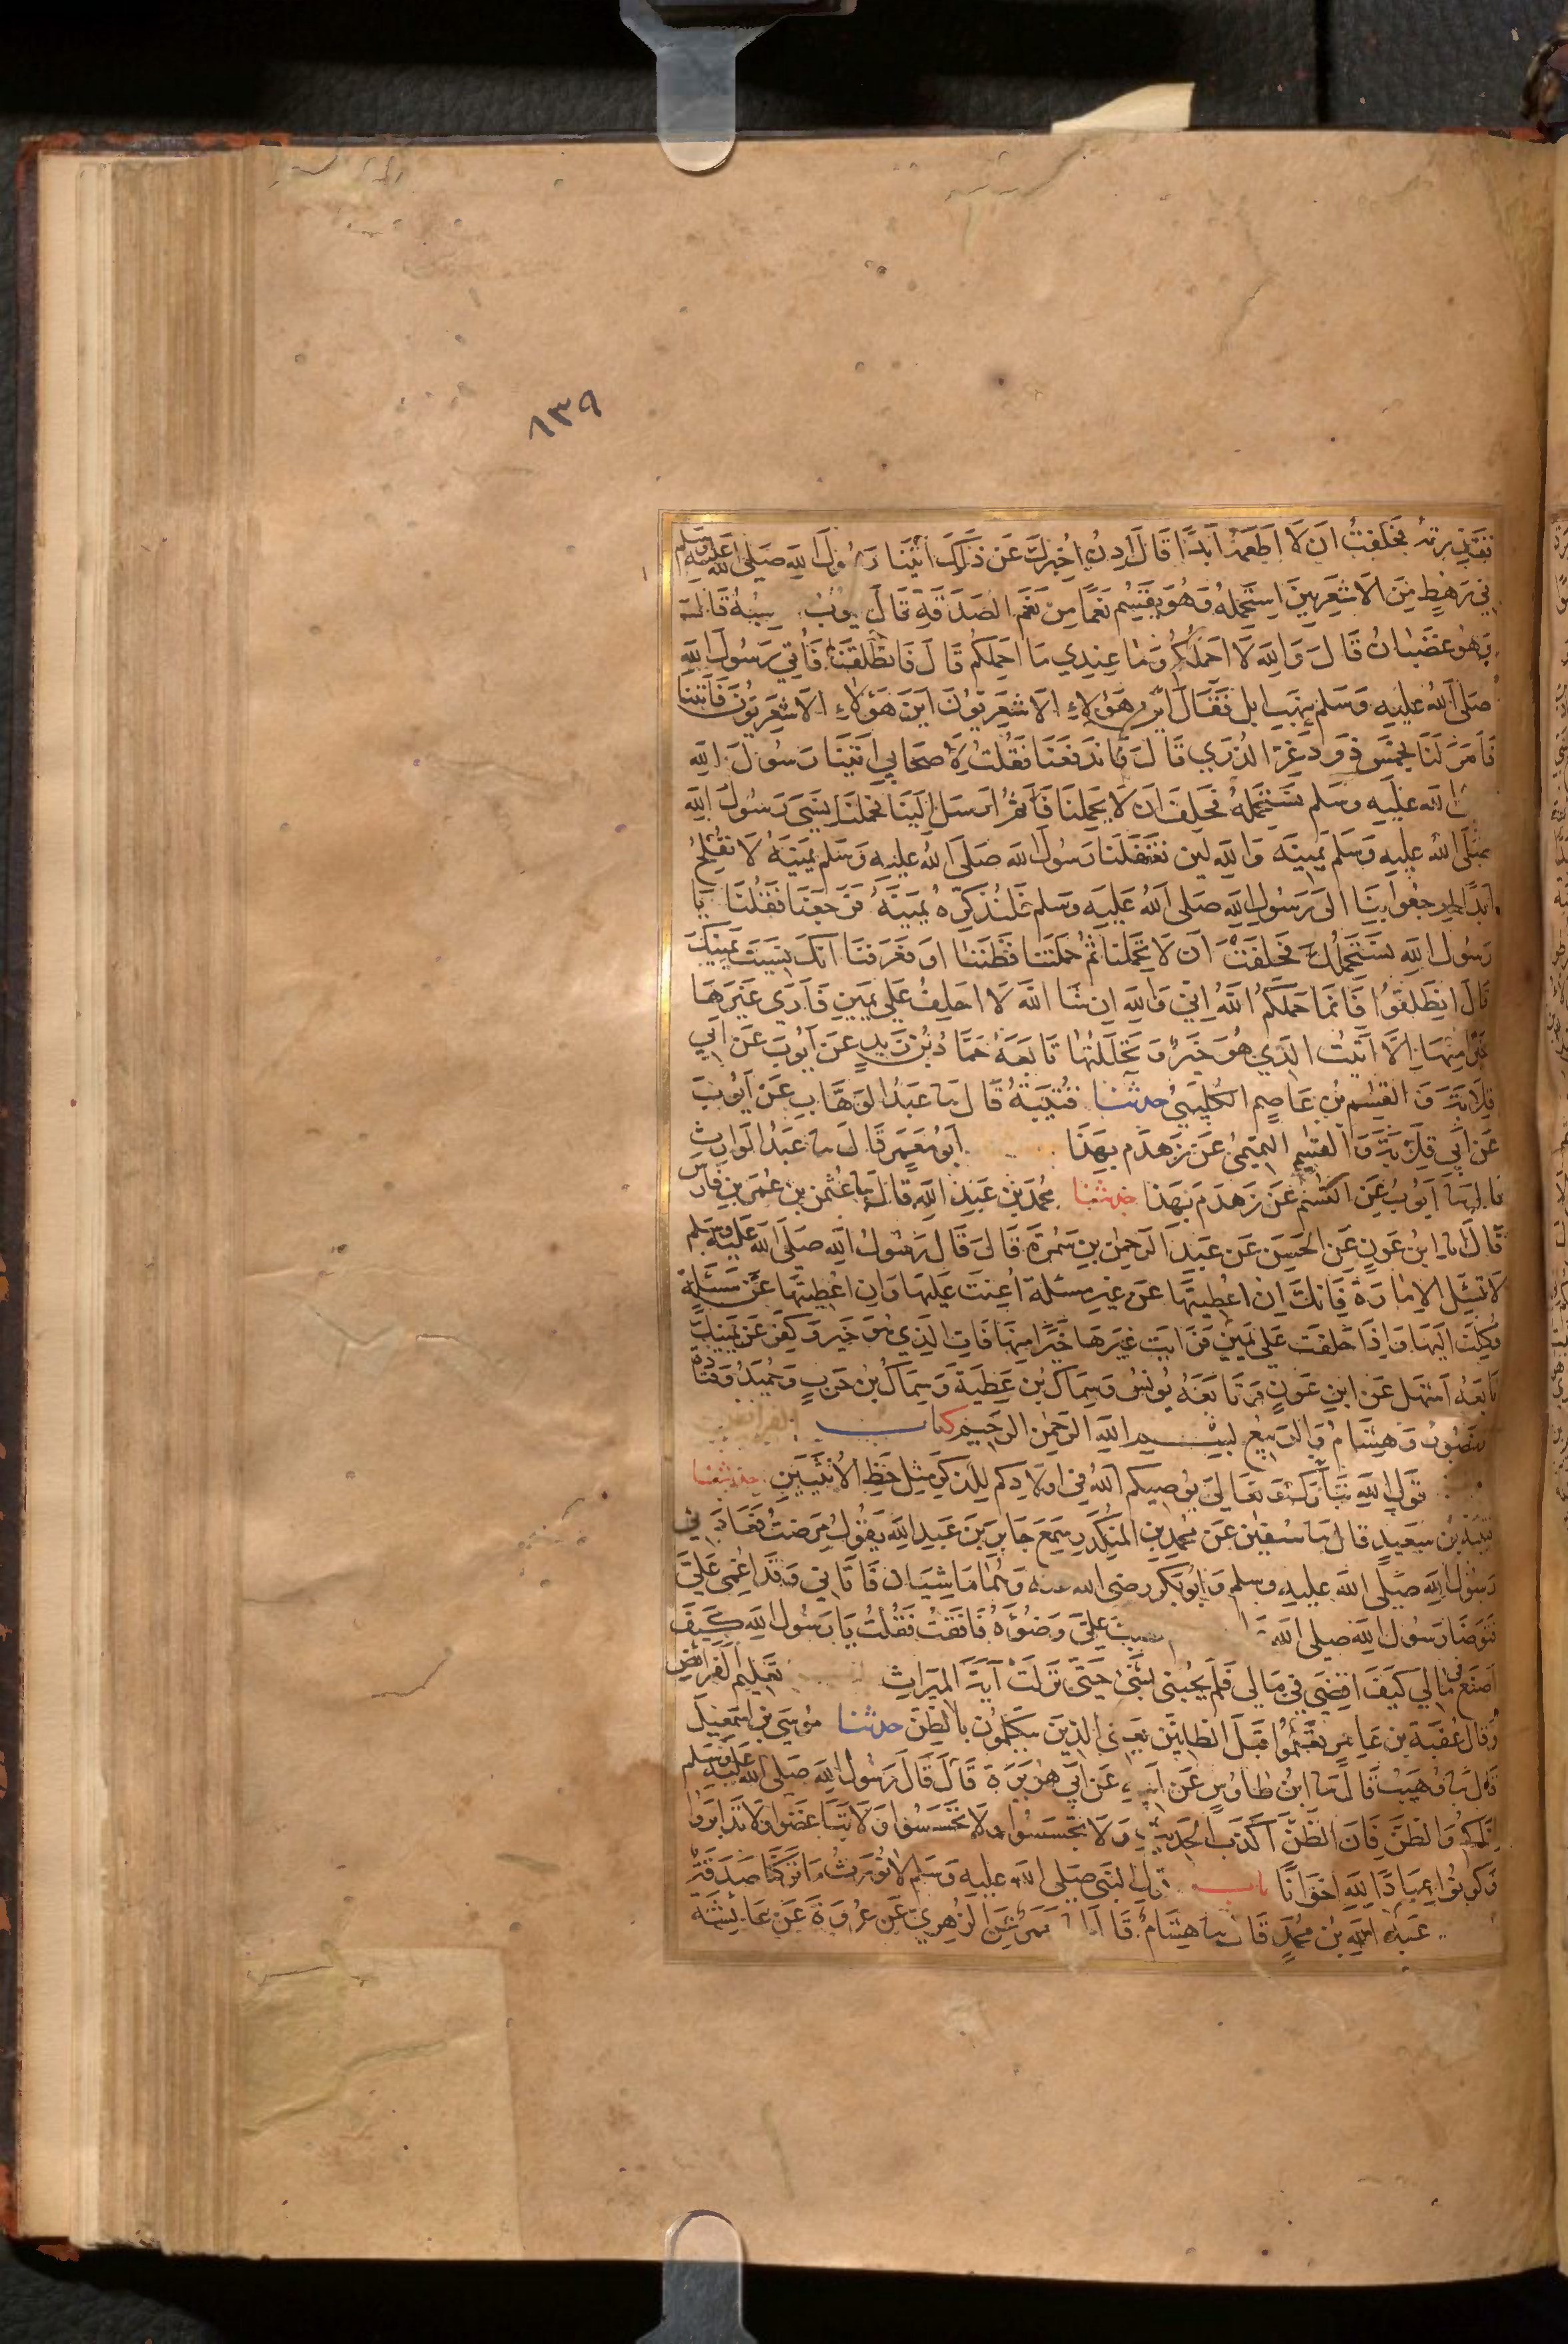 ٨٣٩
فحلفت ان لا اطعمه ابدا قال ادن اخبرك عن ذلك اتينا رسول الله صلى الله عليه وسلم
في رهط من الاشعريين استحمله وهو يقسم نعما من نعم الصدقة قال ايوب احسبه قال
وهو غضبان قال والله لا احملكم وما عندي ما احملكم قال فانطلقنا فأتي رسول الله
صلى الله عليه وسلم بنهب ابل فقال اين هؤلاء الاشعريون اين هؤلاء الاشعريون فأتينا
فأمر لنا بخمس ذود غر الذرى قال فاندفعنا فقلت لأصحابي اتينا رسول الله
الله عليه وسلم نستحمله فحلف ان لا يحملنا ثم ارسل الينا فحملنا نسي رسول الله
صلى الله عليه وسلم يمينه والله لين تغفلنا رسول الله صلى الله عليه وسلم يمينه لا نفلح
ابدا ارجعوا بنا الى رسول الله صلى الله عليه وسلم فلنذكره يمينه فرجعنا فقلنا يا
رسول الله نستحملك فحلفت ان لا تحملنا ثم حملتنا فظننا او فعرفنا انك نسيت يمينك
قال انطلقوا فانما حملكم الله اني والله ان شا الله لا احلف على يمين فأرى غيرها
خيرا منها الا اتيت الذي هو خير وتحللتها تابعه حماد بن زيد عن ايوب عن ابي
قلابة والقسم بن عاصم الكليبي حدثنا قتيبة قال نا عبد الوهاب عن ايوب
عن ابي قلابة والقسم التميمي عن زهدم بهذا ابو معمر قال نا عبد الوارث
قال نا ايوب عن القسم عن زهدم بهذا حدثنا محمد بن عبد الله قال نا عثمن بن عمر بن فارس
قال انا ابن عون عن الحسن عن عبد الرحمن بن سمرة قال قال رسول الله صلى الله عليه وسلم
لا تسئل الامارة فانك ان اعطيتها عن غير مسئلة اعنت عليها وان اعطيتها عن مسئلة
وكلت اليها واذا حلفت على يمين فرايت غيرها خيرا منها فات الذي هو خير وكفر عن يمينك
تابعه اشهل عن ابن عون وتابعه يونس وسماك بن عطية وسماك بن حرب وحميد وقتادة
ومنصور وهشام والربيع بسم الله الرحمن الرحيم كتاب الفرائض
قول الله تبارك وتعالى يوصيكم الله في اولادكم للذكر مثل حظ الانثيين حدثنا
قتيبة بن سعيد قال نا سفين عن محمد بن المنكدر سمع جابر بن عبد الله يقول مرضت فعادني
رسول الله صلى الله عليه وسلم وابو بكر رضي الله عنه وهما ماشيان فأتاني وقد اغمي علي
فتوضا رسول الله صلى الله فصب علي وضوءه فافقت فقلت يا رسول الله كيف
اصنع في مالي كيف اقضي في مالي فلم يجبني بشئ حتى نزلت آية الميراث تعليم الفرائض
وقال عقبة بن عامر تعلموا قبل الظانين يعني الذين يتكلمون بالظن حدثنا موسى بن اسمعيل
قال نا وهيب قال نا ابن طاوس عن ابيه عن ابي هريرة قال قال رسول الله صلى الله عليه وسلم
اياكم والظن فان الظن اكذب الحديث ولا تجسسوا ولا تحسسوا ولا تباغضوا ولا تدابروا
وكونوا عباد الله اخوانا باب قول النبي صلى الله عليه وسلم لا نورث ما تركنا صدقة
عبد الله بن محمد قال نا هشام قال انا معمر عن الزهري عن عروة عن عائشة